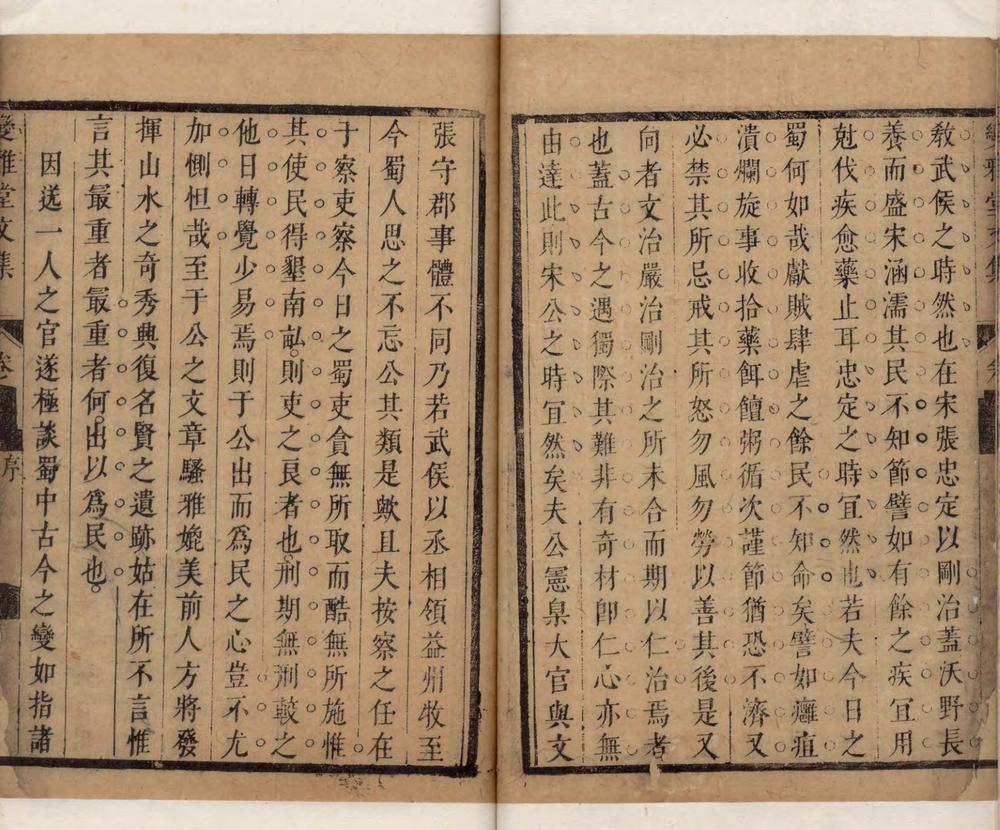 雅堂文集
敎武侯之時然也在宋張忠定以剛治蓋沃野長
養而盛宋涵濡其民不知節譬如有餘之疾宜用
尅伐疾愈藥止耳忠定之時宜然也若夫今日之
蜀何如哉獻賊肆虐之餘民不知命矣譬如癰疽
潰爛旋事收拾藥餌饘粥循次謹節猶恐不濟又
必禁其所忌戒其所怒勿風勿勞以善其後是又
向者文治嚴治剛治之所未合而期以仁治焉者
也蓋古今之遇獨際其難非有奇材卽仁心亦無
由達此則宋公之時宜然矣夫公憲臬大官與文
張守郡事體不同乃若武侯以丞相領益州牧至
今蜀人思之不忘公其類是歟且夫按察之任在
于察吏察今日之蜀吏貪無所取而酷無所施惟
其使民得墾南畝則吏之良者也刑期無刑較之
他日轉覺少易焉則于公出而爲民之心豈不尤
加惻怛哉至于公之文章騷雅媲美前人方將發
揮山水之奇秀興復名賢之遺跡姑在所不言惟
言其最重者最重者何出以爲民也
因送一人之官遂極談蜀中古今之變如指諸
變雅堂文集 卷 序